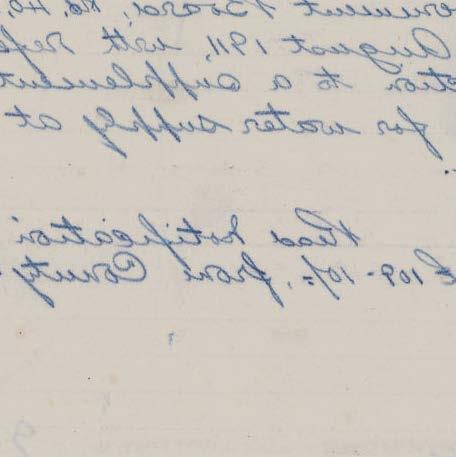 ernment Board, No. 40,
August 1911, with refe
ction to a supplement
for water supply at
Read Notification
£109-10/-, from County